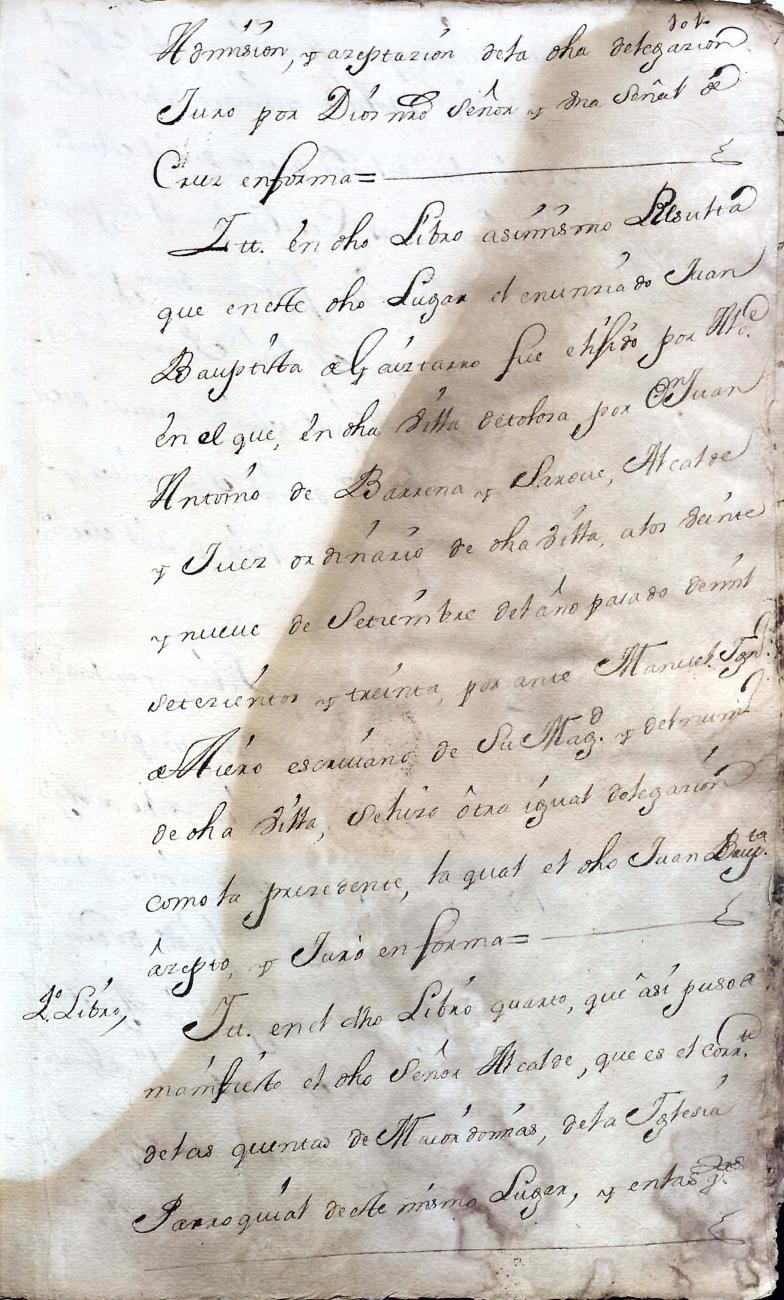 101
Admision, y azeptazion dela dha delegazion
Juro por Dios nrô Señor y vna señal de
Cruz enforma=
Itt. en dho Libro asimismo Resulta
que eneste dho Lugar el enunziado Juan
Bauptista de Gaiztarro fue elixido por Alce.
en el que, en dha Villa detolosa por Dn Juan
Antonio de Barrena y Saroue, Alcalde
y Juez ordinario de dha Villa, alos veinte
y nueue de Setiembre del año pasado demil
setezientos y treinta, por ante Manuel Ignº.
de Aiero escriuano de Su Magd. y del num.º
de oha Villa, Sehizo ôtra igual delegazion
como la prezedente, la qual el dho Juan Baupta.
âzepto, y Juro en forma=
4.º Libro, Itt. enel dho Libro quarto, que âsi puso de
manifiesto el dho Señor Alcalde, que es el corrte.
delas quentas de Maiordomias, dela Iglesia
Parroquial deeste mismo Lugar, y enlas